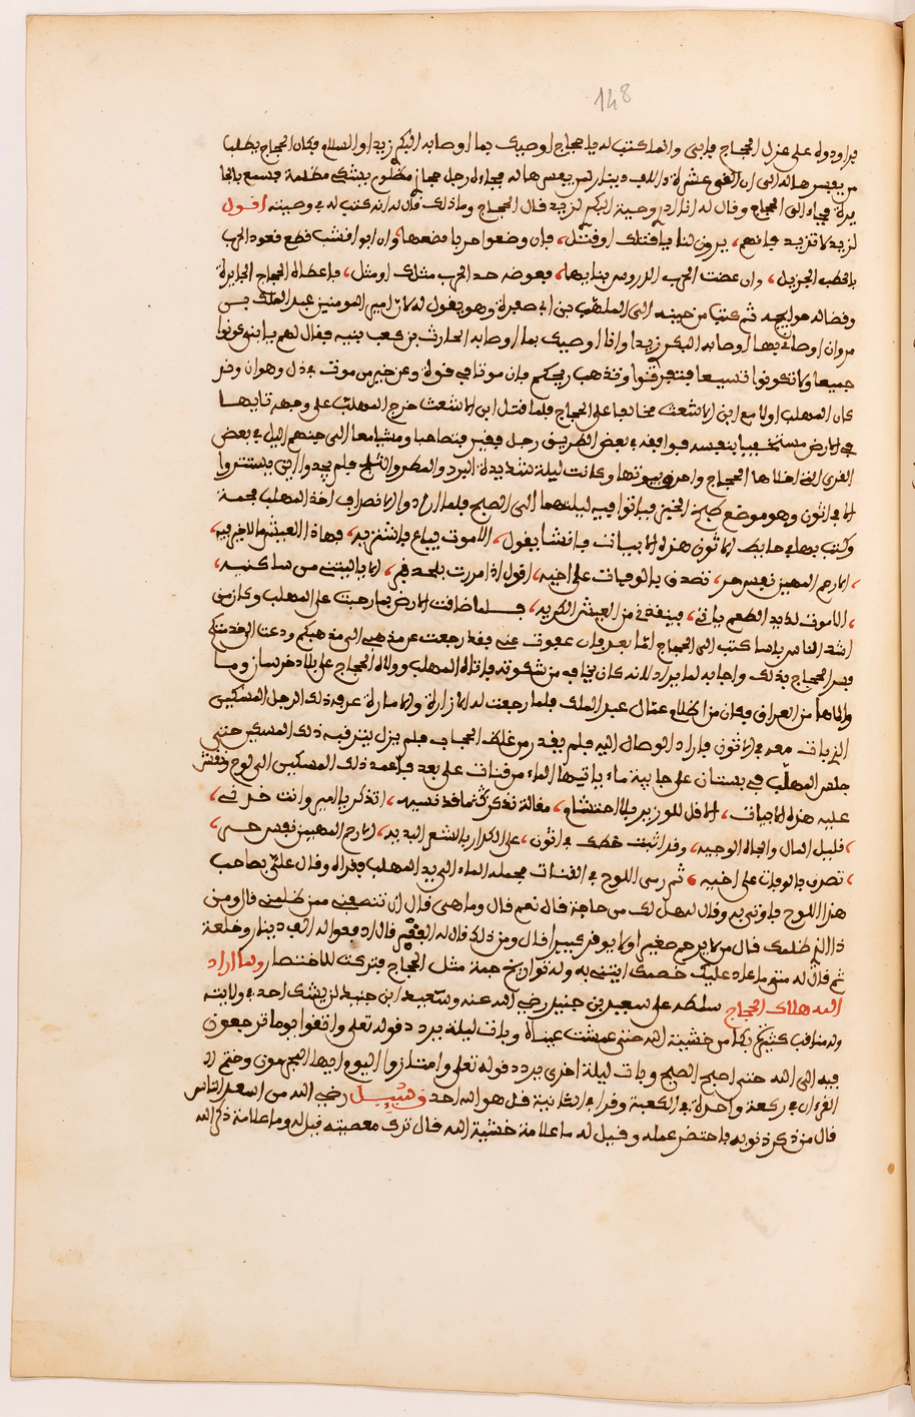 148
يراودوه على عزل الحجاج فابى وانما كتب له يا حجاج اوصيك بما اوصا به البكري زيدا والسلام فكان الحجاج يطلب
من يفسرها له الى ان الفي عشرة الاف دينار لمن يفسرها له فجاءه رجل حجازي مظلوم يشتكي مظلمة فسمع بالخا
برة فجاء الى الحجاج وقال له انا ادر وصية البكري لزيد قال الحجاج وما ذلك قال له انه كتب له في وصيته اقول
لزيد لا تزيد فانهم يرون لنا يا قتلك او قتل فان وضعوا حربا فضعها وان ابوا فشب قطع فعود الحرب
بالحطب الجزيل وان عضت الحرب الضروس بنابها فعوضه حد الحرب مثلك او مثل فاعطاه الحجاج الجايزة
وقضا له حوايجه ثم كتب من حينه الى المهلب بن ابي صفرة وهو يقول له ان امير المومنين عبد الملك بن
مروان اوصاني بما اوصا به البكري زيدا وانا اوصيك بما اوصا به الحارث بن كعب بنيه فقال لهم يا بني كونوا
جميعا ولا تكونوا شيعا فتفرقوا وتذهب ريحكم فان موتا في قوة وعز خير من موت في ذل وهوان وقد
كان المهلب اولا مع ابن الاشعث مخالفا على الحجاج فلما قتل ابن الاشعث خرج المهلب على وجهه تايها
في الارض مستخفيا بنفسه فوافقه في بعض الطريق رجل فقير فتصاحبا ومشيا معا الى جنهم اليل في بعض
القرى التي اخلاها الحجاج واحرق بيوتها وكانت ليلة شديدة البرد والمطر والثلج فلم يجدوا اين يستتروا
الا في اتون وهو موضع طبخ الخبز فباتوا فيه ليلتهما الى الصبح فلما ارادوا الانصراف اخذ المهلب فحمة
وكتب بها في حايط الاتون هذه الابيات فانشا يقول الا موت يباع فاشتريه فهاذا العيش ما لا خير فيه
الا رحم المهيمن نفس حر تصدق بالوفيات على اخيه اقول اذا مررت بلحد قبر الا يا ليتني من ساكنيه
الا موت لذيذ الطعم ياتي فينقذني من العيش الكريه فلما ضاقت الارض بما رحبت على المهلب وكان من
اشد الناس باسا كتب الى الحجاج
فسر الحجاج بذلك واجابه لما يراد لانه كان يخاف من شكوته فاتاه المهلب وولاه الحجاج على بلاد خرسان وما
والاها من العراق فكان من اعظم عمال عبد الملك فلما رجعت له الازارة والامارة عرفه ذلك الرجل المسكين
الذي بات معه في الاتون فاراد الوصال اليه فلم يقدر من غلظ الحجاب فلم يزل يترقبه ذلك المسكين حتى
جلس المهلب في بستان على جابية ماء ياتيها الماء من قنات على بعد فاعمد ذلك المسكين الى لوح ونقش
عليه هذه الابيات الا قل للوزير بلا احتشام مقالة تذكر ثما قد نسيه اتذكر يا امير وانت خل في
قليل المال والجاه الوجيه وقد اثبت خطك في اتون على الجدار بالشعر البديه الا رحم المهيمن نفس حر
تصدق بالوفات على اخيه ثم رمى اللوح في القنات فحمله الماء الى يد المهلب فقراه وقال علي بصاحب
هذا اللوح فاوتي به وقال له هل لك من حاجة قال نعم قال وما هي قال ان تنصفني ممن ظلمني قال ومن
ذا الذي ظلمك قال من لا يرحم صغيرا ولا يوقر كبيرا قال ومن ذلك قال له الفقر قال ادفعوا له الف دينار وخلعة
ثم قال له متى ما عاد عليك خصمك ايتني به وله تواريخ جمة مثل الحجاج فتركت للاختصار ولما اراد
الله هلاك الحجاج سلطه على سعيد بن جبير رضي الله عنه وسعيد ابن جبير لم يشك احد في ولايته
وله مناقب كثيرة بكا من خشية الله حتى عمشت عيناه وبات ليلة يردد قوله تعلى واتقوا يوما ترجعون
فيه الى الله حتى اصبح الصبح وبات ليلة اخرى يردد قوله تعلى وامتازوا اليوم ايها المجرمون وختم
القرءان في ركعة واحدة في الكعبة وقرا في الثانية قل هو الله احد وسيل رضي الله من اسعد الناس
قال من ذكر ذنوبه فاحتضر عمله وقيل له ما علامة خشية الله قال ترك معصيته قيل له وما علامة ذكر الله